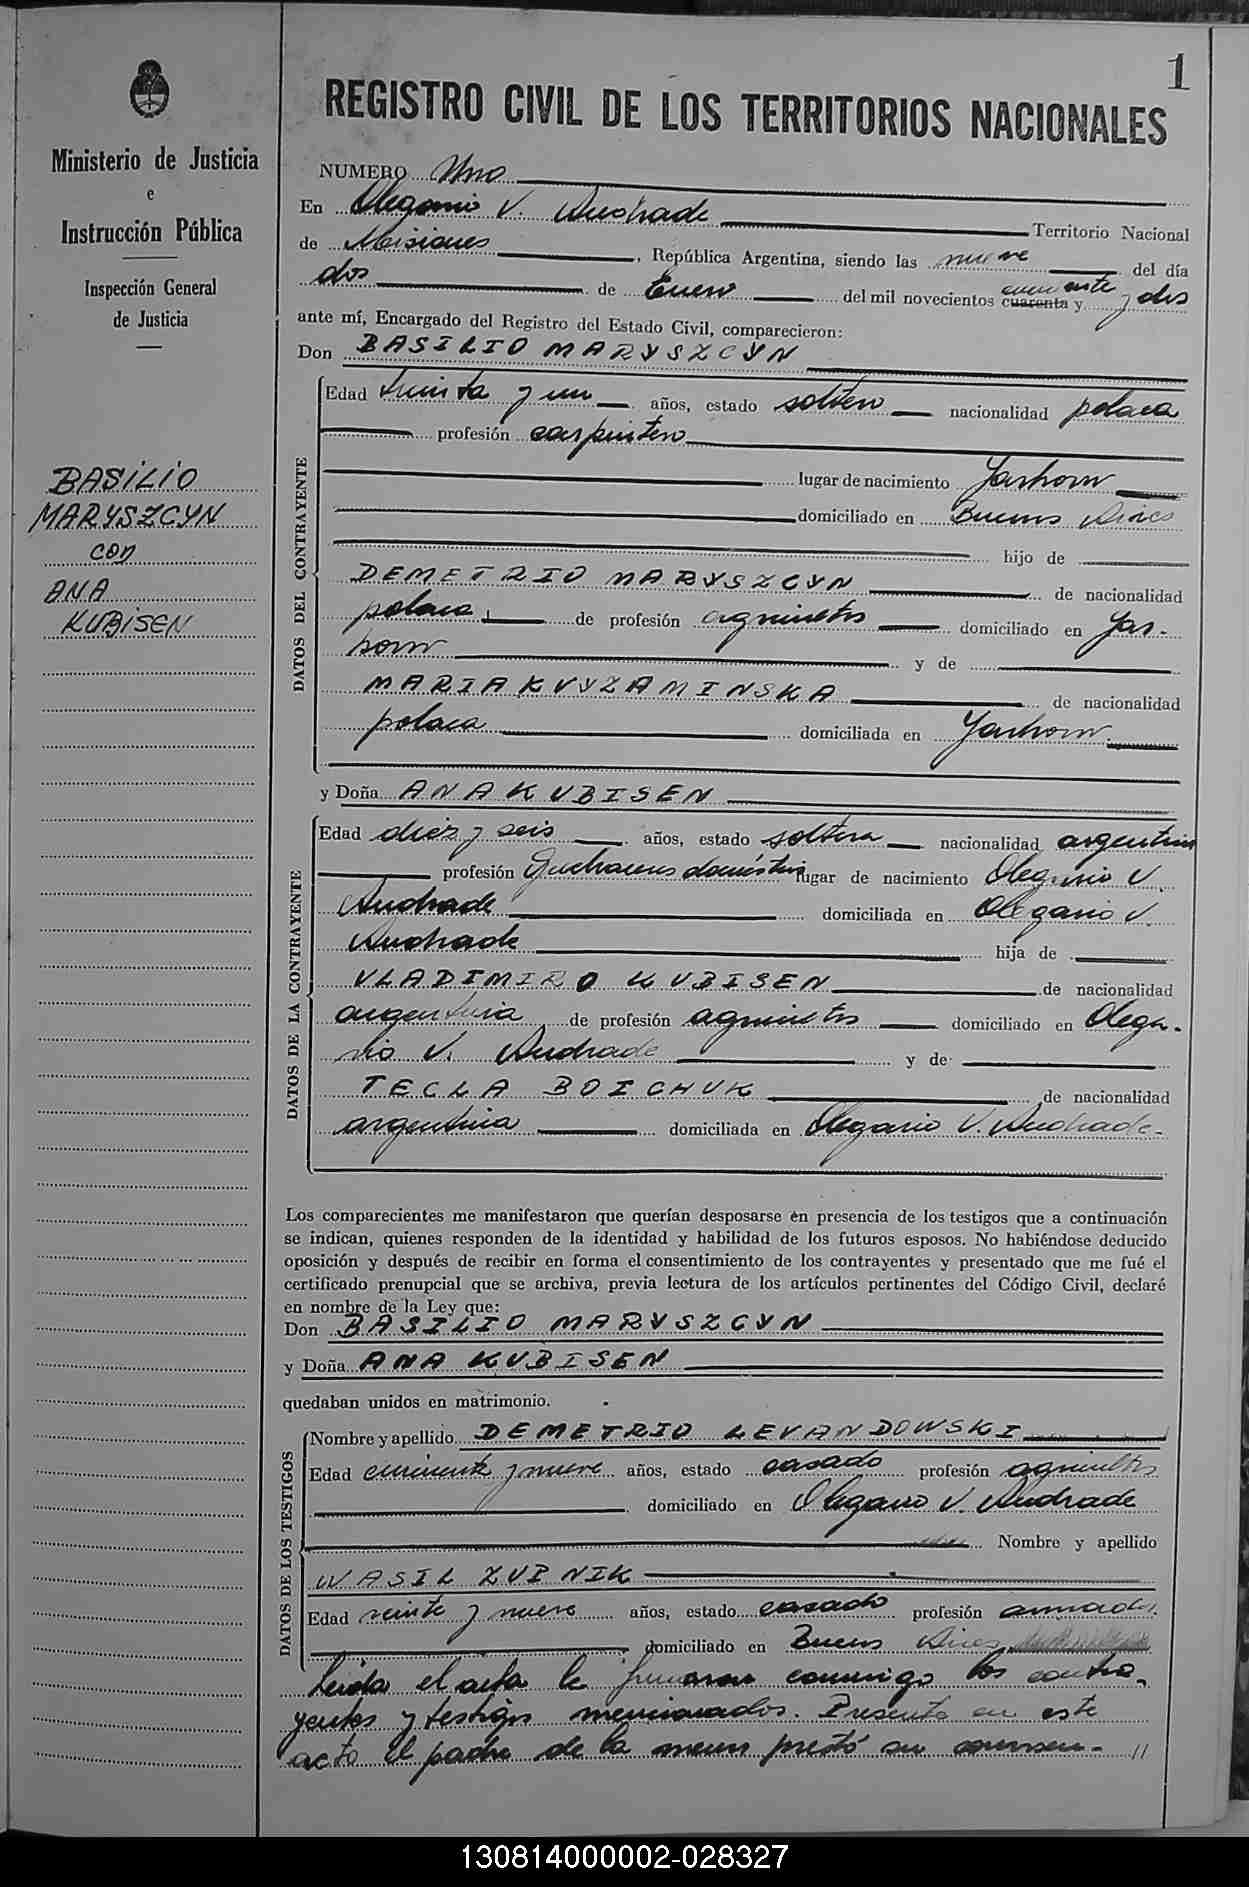 1
Ministerio de Justicia
e
Instrucción Pública
Inspección General
de Justicia
BASILIO
MARYSZCYN
con
ANA
KUBISEN
REGISTRO CIVIL DE LOS TERRITORIOS NACIONALES
NUMERO Uno
En Olegario V. Andrade Territorio Nacional
de Misiones, República Argentina, siendo las nueve del día
dos de Enero del mil novecientos cuarenta y cincuenta y dos
ante mí, Encargado del Registro del Estado Civil, comparecieron:
Don BASILIO MARYSZCYN
DATOS DEL CONTRAYENTE
Edad treinta y un años, estado soltero nacionalidad polaca
profesión carpintero
lugar de nacimiento
domiciliado en Buenos Aires
hijo de
DEMETRIO MARYSZCYN de nacionalidad
polaca de profesión agricultor domiciliado en
y de
MARIA KVYZAMINSKA de nacionalidad
polaca domiciliada en
y Doña ANA KUBISEN
DATOS DE LA CONTRAYENTE
Edad diez y seis años, estado soltera nacionalidad argentina
profesión Quehaceres domésticos lugar de nacimiento Olegario V.
Andrade domiciliada en Olegario V.
Andrade hija de
VLADIMIRO KUBISEN de nacionalidad
argentina de profesión agricultor domiciliado en Olega-
rio V. Andrade y de
TECLA BOICHUK de nacionalidad
argentina domiciliada en Olegario V. Andrade-
Los comparecientes me manifestaron que querían desposarse en presencia de los testigos que a continuación
se indican, quienes responden de la identidad y habilidad de los futuros esposos. No habiéndose deducido
oposición y después de recibir en forma el consentimiento de los contrayentes y presentado que me fué el
certificado prenupcial que se archiva, previa lectura de los artículos pertinentes del Código Civil, declaré
en nombre de la Ley que:
Don BASILIO MARYSZCYN
y Doña ANA KUBISEN
quedaban unidos en matrimonio.
DATOS DE LOS TESTIGOS
Nombre y apellido DEMETRIO LEVANDOWSKI
Edad cincuenta y nueve años, estado casado profesión agricultor
domiciliado en Olegario V. Andrade
Nombre y apellido
WASIL ZUBNIK
Edad veinte y nueve años, estado casado profesión
domiciliado en Buenos Aires
Leída el acta la firmaron conmigo los contra-
yentes y testigos mencionados. Presente en este
acto el padre de la menor prestó su consen- //
130814000002-028327